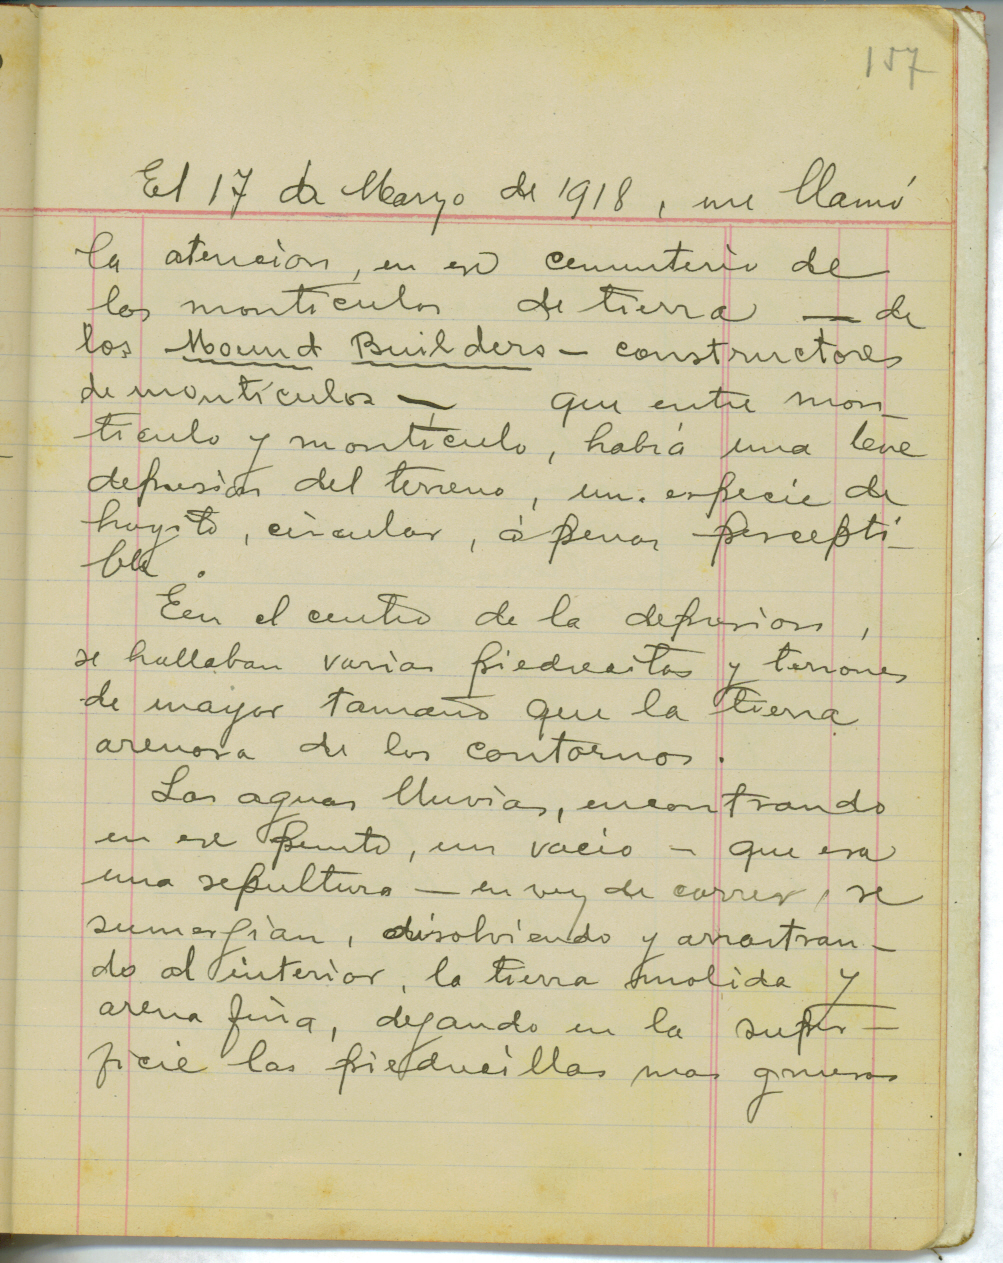 157
El 17 de Marzo de 1918, me llamó
la atencion, en ese cementerio de
los monticulos de tierra — de
los Mound Builders — constructores
de monticulos — que entre mon-
ticulo y monticulo, habia una leve
depresion del terreno, un. especie de
hoyito, circular, á penas percepti-
ble.
Een el centro de la depresion,
se hallaban varias piedrecitas y terrones
de mayor tamaño que la tierra
arenosa de los contornos.
Las aguas lluvias, encontrando
en ese punto, un vacio — que era
una sepultura — en vez de correr, se
sumergian, disolviendo y arrastran-
do al interior, la tierra molida y
arena fina, dejando en la super-
ficie las piedrecillas mas gruesas